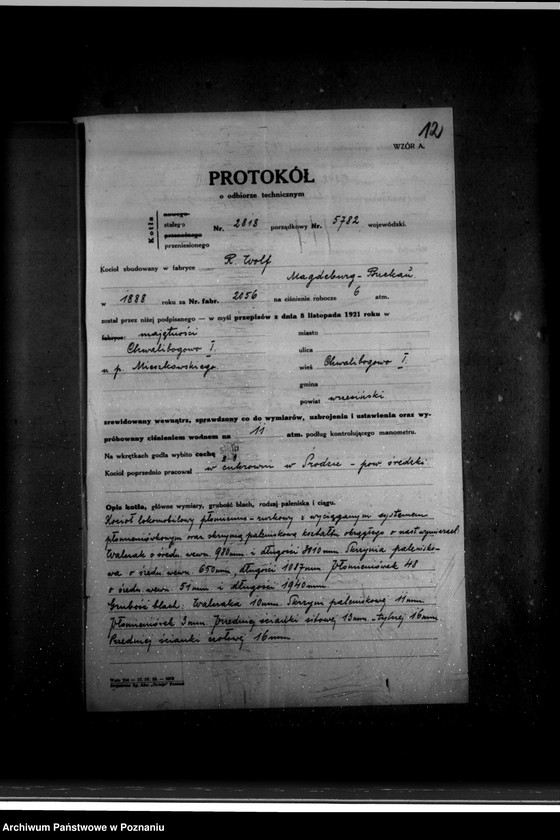 12
WZÓR A.
PROTOKÓŁ
o odbiorze technicznym
Kotła
nowego
stałego
przenośnego
przeniesionego
Nr. 2818 porządkowy Nr. 5782 wojewódzki.
Kocioł zbudowany w fabryce R. Wolf
Magdeburg-Buckau
w 1888 roku za Nr. fabr. 2056 na ciśnienie robocze 6 atm.
został przez niżej podpisanego — w myśl przepisów z dnia 8 listopada 1921 roku w
fabryce: majętności
Chwalibogowo I.
u p. Mieszkowskiego
miasto
ulica
wieś Chwalibogowo I.
gmina
powiat wrzesiński
zrewidowany wewnątrz, sprawdzony co do wymiarów, uzbrojenia i ustawienia oraz wy-
próbowany ciśnieniem wodnem na 11 atm. podług kontrolującego manometru.
Na wkrętkach godła wybito cechę
Kocioł poprzednio pracował w cukrowni w Środzie - pow. średzki
Opis kotła, główne wymiary, grubość blach, rodzaj paleniska i ciągu.
Kocioł lokomobilowy płomienno-rurkowy z wyciąganym systemem
płomieniówkowym oraz skrzynią paleniskową kształtu okrągłego o nast. wymiarach
Walczak o średn. wewn. 980 mm i długości 2010 mm Skrzynia palenisko-
wa o średn. wewn. 650 mm, długości 1087 mm Płomieniówek 48
o średn. wewn. 51 mm i długości 1940 mm
Grubość blach: Walczaka 10 mm. Skrzyni paleniskowej 11 mm.
Płomieniówek 3 mm. Przedniej ścianki sitowej 13 mm - tylnej 16 mm
Przedniej ścianki czołowej 16 mm
Archiwum Państwowe w Poznaniu